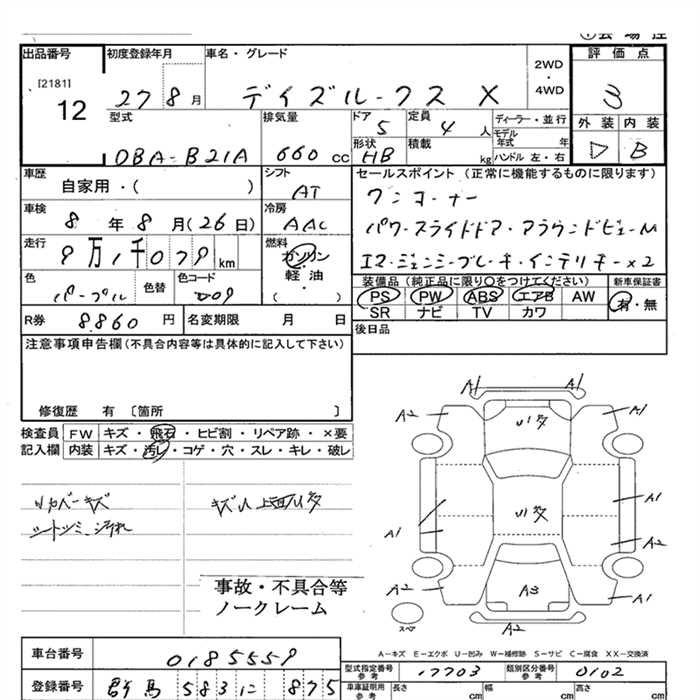 出品番号 初度登録年月 車名・グレード 2WD・4WD 評価点
[2181]
12 27 8月 デイズルークス X 3
型式 排気量 ドア 定員 ディーラー・並行 外装 内装
DBA-B21A 660cc 5 4人 モデル年式 年
形状 HB 積載 kg ハンドル 左・右 D B
車歴 シフト セールスポイント (正常に機能するものに限ります)
自家用・( ) AT ワンオーナー
車検 冷房 パワースライドドア・アラウンドビューM
8年8月(26日) AAC
走行 燃料 エマージェンシーブレーキ・インテリキー×2
9万1千079km ガソリン・軽油 ( )
色 色替 色コード 装備品 (純正品に限り○をつけてください) 新車保証書
パープル PS PW ABS エアB AW 有・無
R券 8.860円 名変期限 月 日 SR ナビ TV カワ
注意事項申告欄(不具合内容等は具体的に記入して下さい) 後日品
修復歴 有 〔箇所 〕
検査員 FW キズ・飛石・ヒビ割・リペア跡・×要
記入欄 内装 キズ・汚レ・コゲ・穴・スレ・キレ・破レ
キズ
シートシミ、汚れ
事故・不具合等
ノークレーム
A1 A1
A2 A1
A1
A1 A2
A2 A3 A1
スペア A2
A-キズ E-エクボ U-凹み W-補修跡 S-サビ C-腐食 XX-交換済
車台番号 0185559 型式指定番号 参考 17703 類別区分番号 参考 0102
登録番号 群馬 583 に 875 車庫証明用 参考 長さ cm 幅 cm 高さ cm